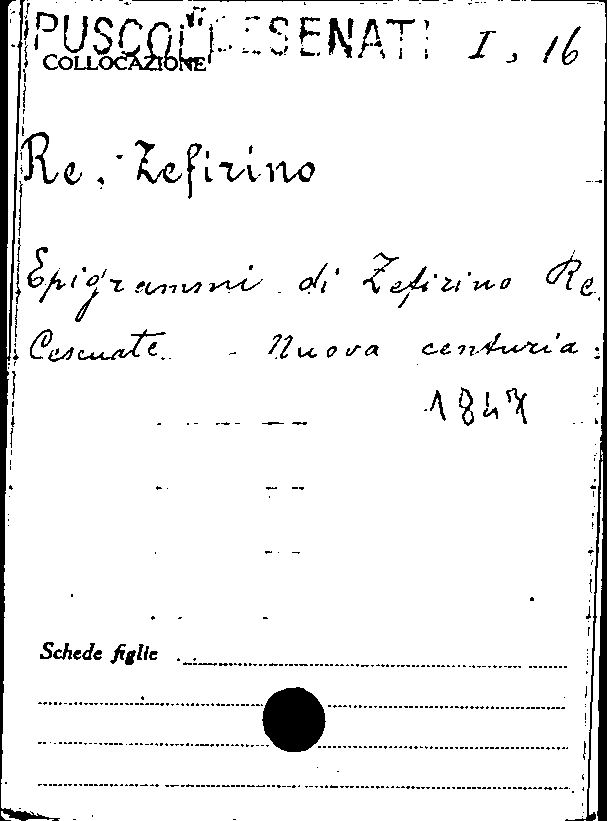 PUSCOLI CESENATI I, 16
COLLOCAZIONE
Re, Zefirino
Epigrammi di Zefirino Re
Cesenate. - Nuova centuria.
1847
Schede figlie